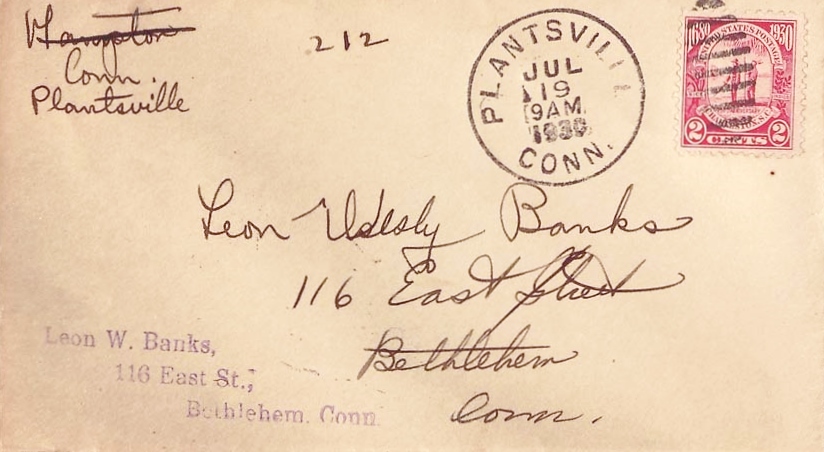 Hampton
Conn.
Plantsville
212
PLANTSVILL
JUL
19
9AM
1930
CONN.
1680 1930
UNITED STATES POSTAGE
CHARLESTON, S.C.
2 CENTS 2
Leon Wesly Banks
116 East Street
Bethlehem
Conn.
Leon W. Banks,
116 East St.,
Bethlehem, Conn.